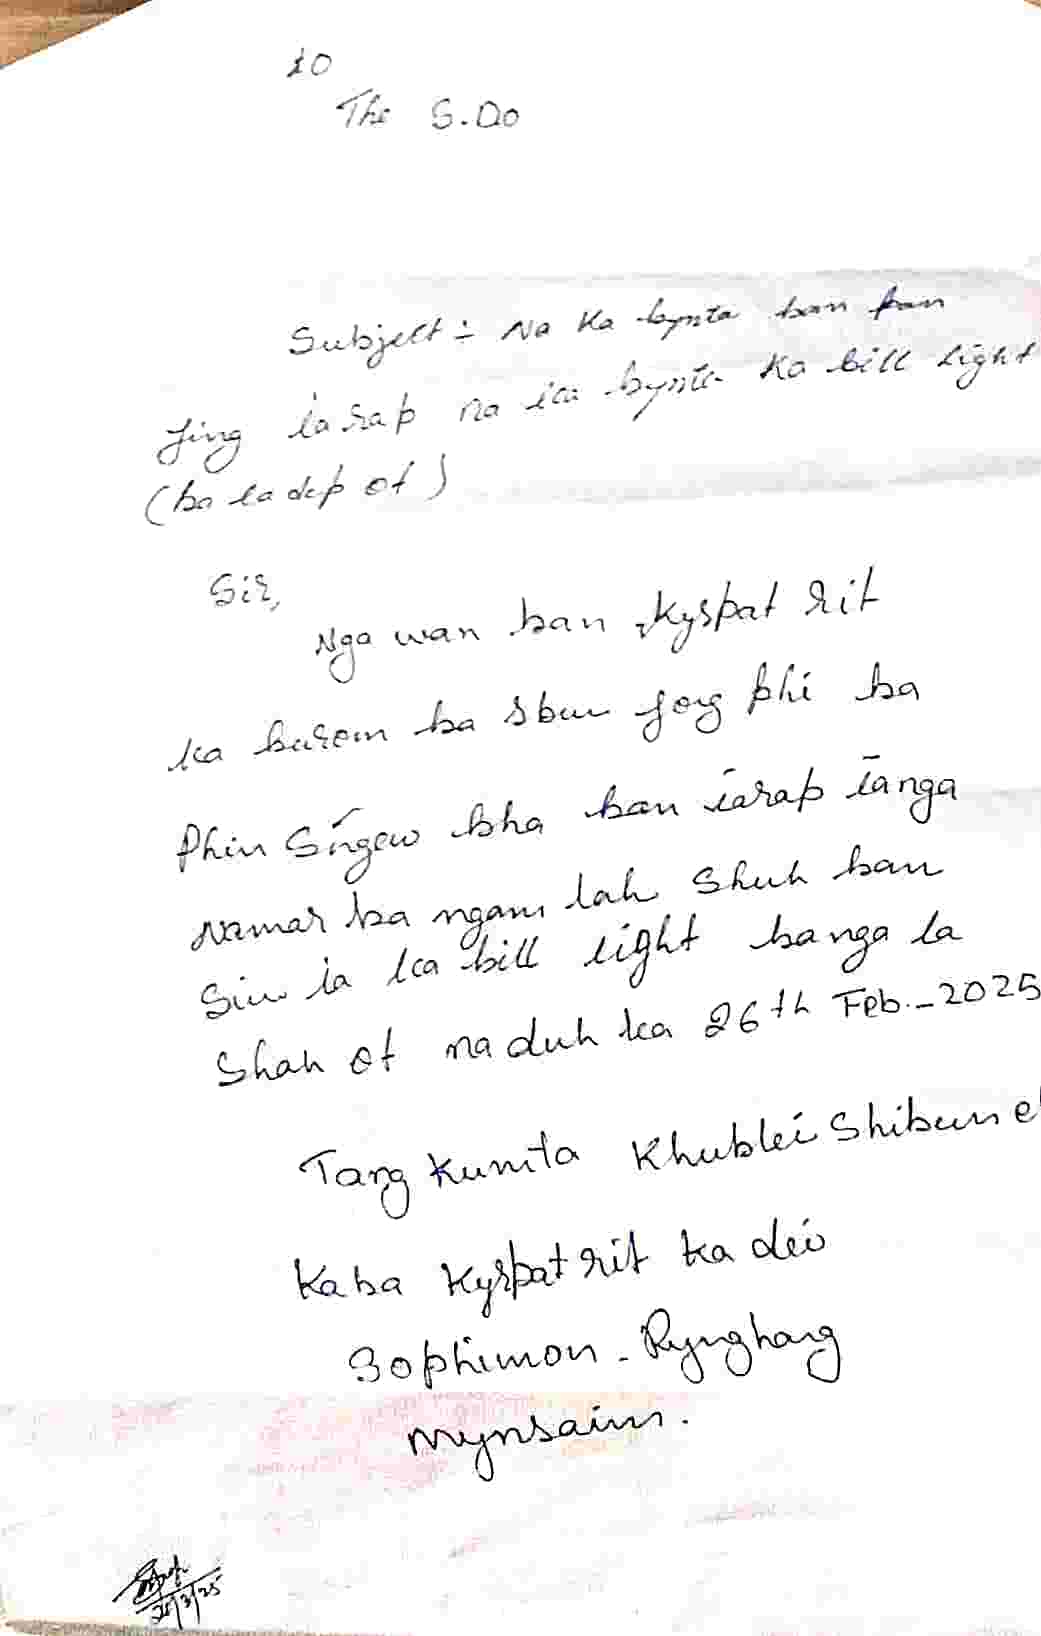 To
The S.Do
Subject :- Na Ka bynta ban pan
Jing ïarap na ka bynta Ka bill light
(ba la dep ot)
Sir,
Nga wan ban kyrpat rit
ka burom ba sbun jong phi ba
Phin Sngew bha ban ïarap ïanga
Namar ba ngam lah shuh ban
Siw ïa ka bill light banga la
Shah ot naduh ka 26th Feb.-2025
Tang Kumta Khublei Shibun eh
Kaba Kyrpat rit ka dei
Sophimon - Rynghang
Mynsain.
26/3/25